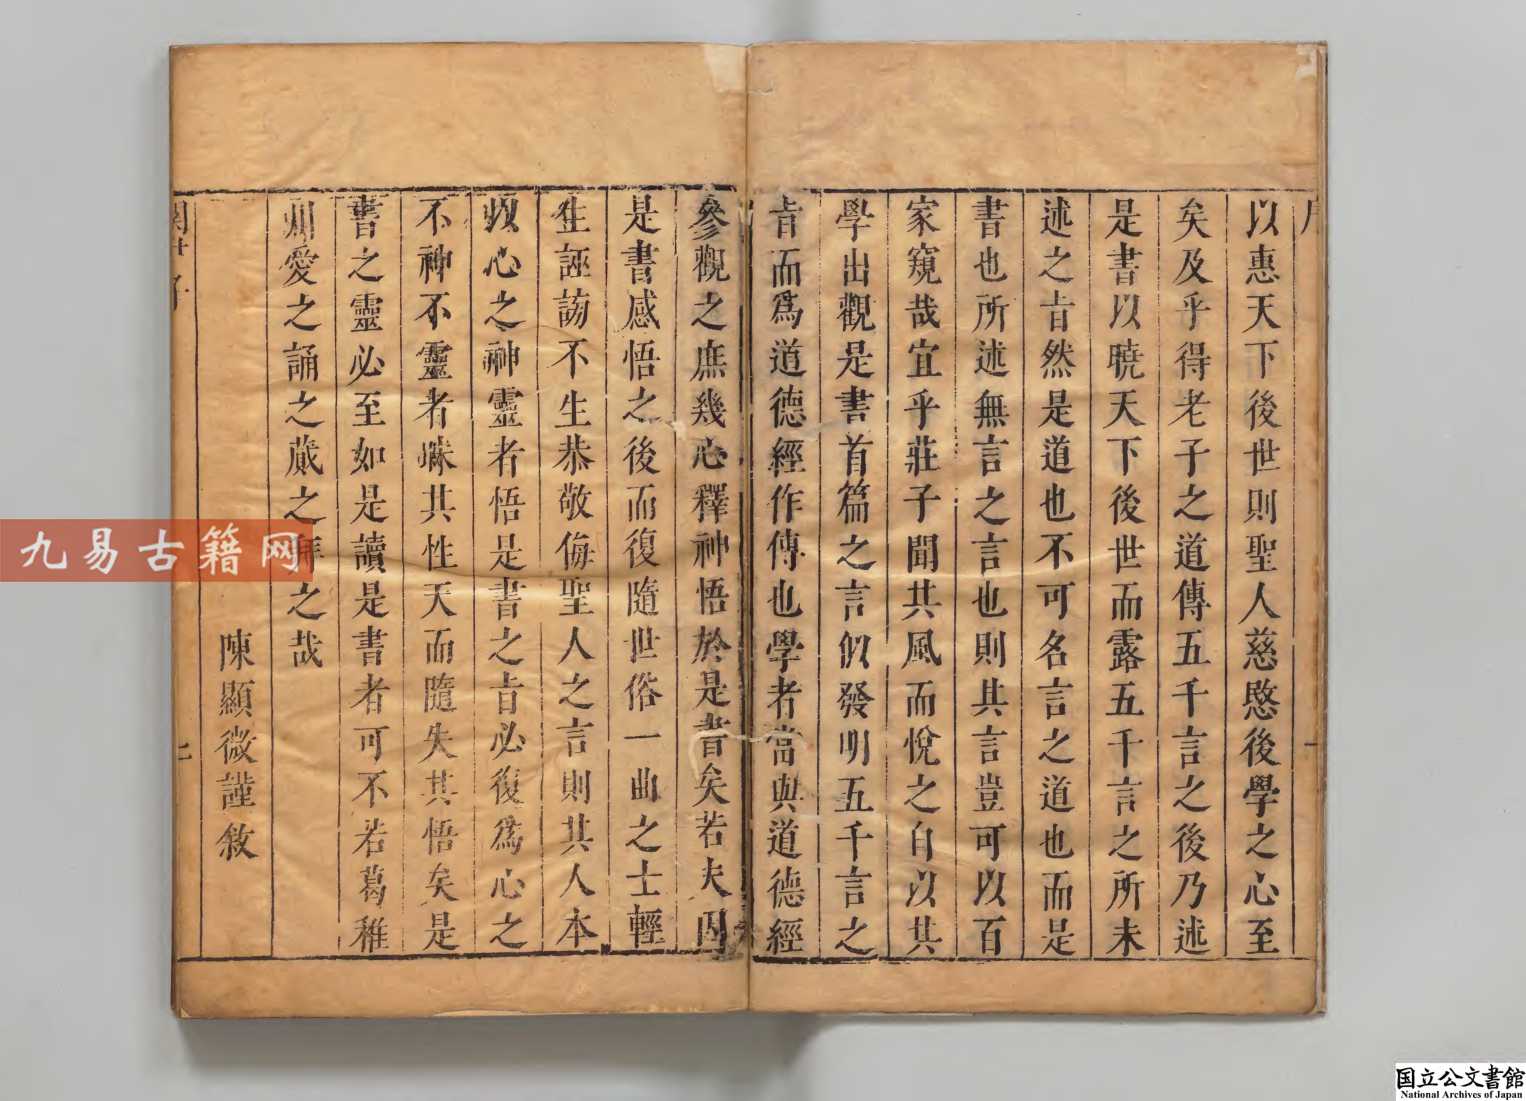 以惠天下後世則聖人慈愍後學之心至
矣及乎得老子之道傳五千言之後乃述
是書以曉天下後世而露五千言之所未
述之旨然是道也不可名言之道也而是
書也所述無言之言也則其言豈可以百
家窺哉宜乎莊子聞其風而悅之自以其
學出觀是書首篇之言似發明五千言之
旨而爲道德經作傳也學者當與道德經
參觀之庶幾心釋神悟於是書矣若夫因
是書感悟之後而復隨世俗一曲之士輕
生誣謗不生恭敬侮聖人之言則其人本
以心之神靈者悟是書之旨必復爲心之
不神不靈者昧其性天而隨失其悟矣是
書之靈必至如是讀是書者可不若葛稚
川愛之誦之藏之拜之哉
陳顯微謹敘
九易古籍网
国立公文書館
National Archives of Japan